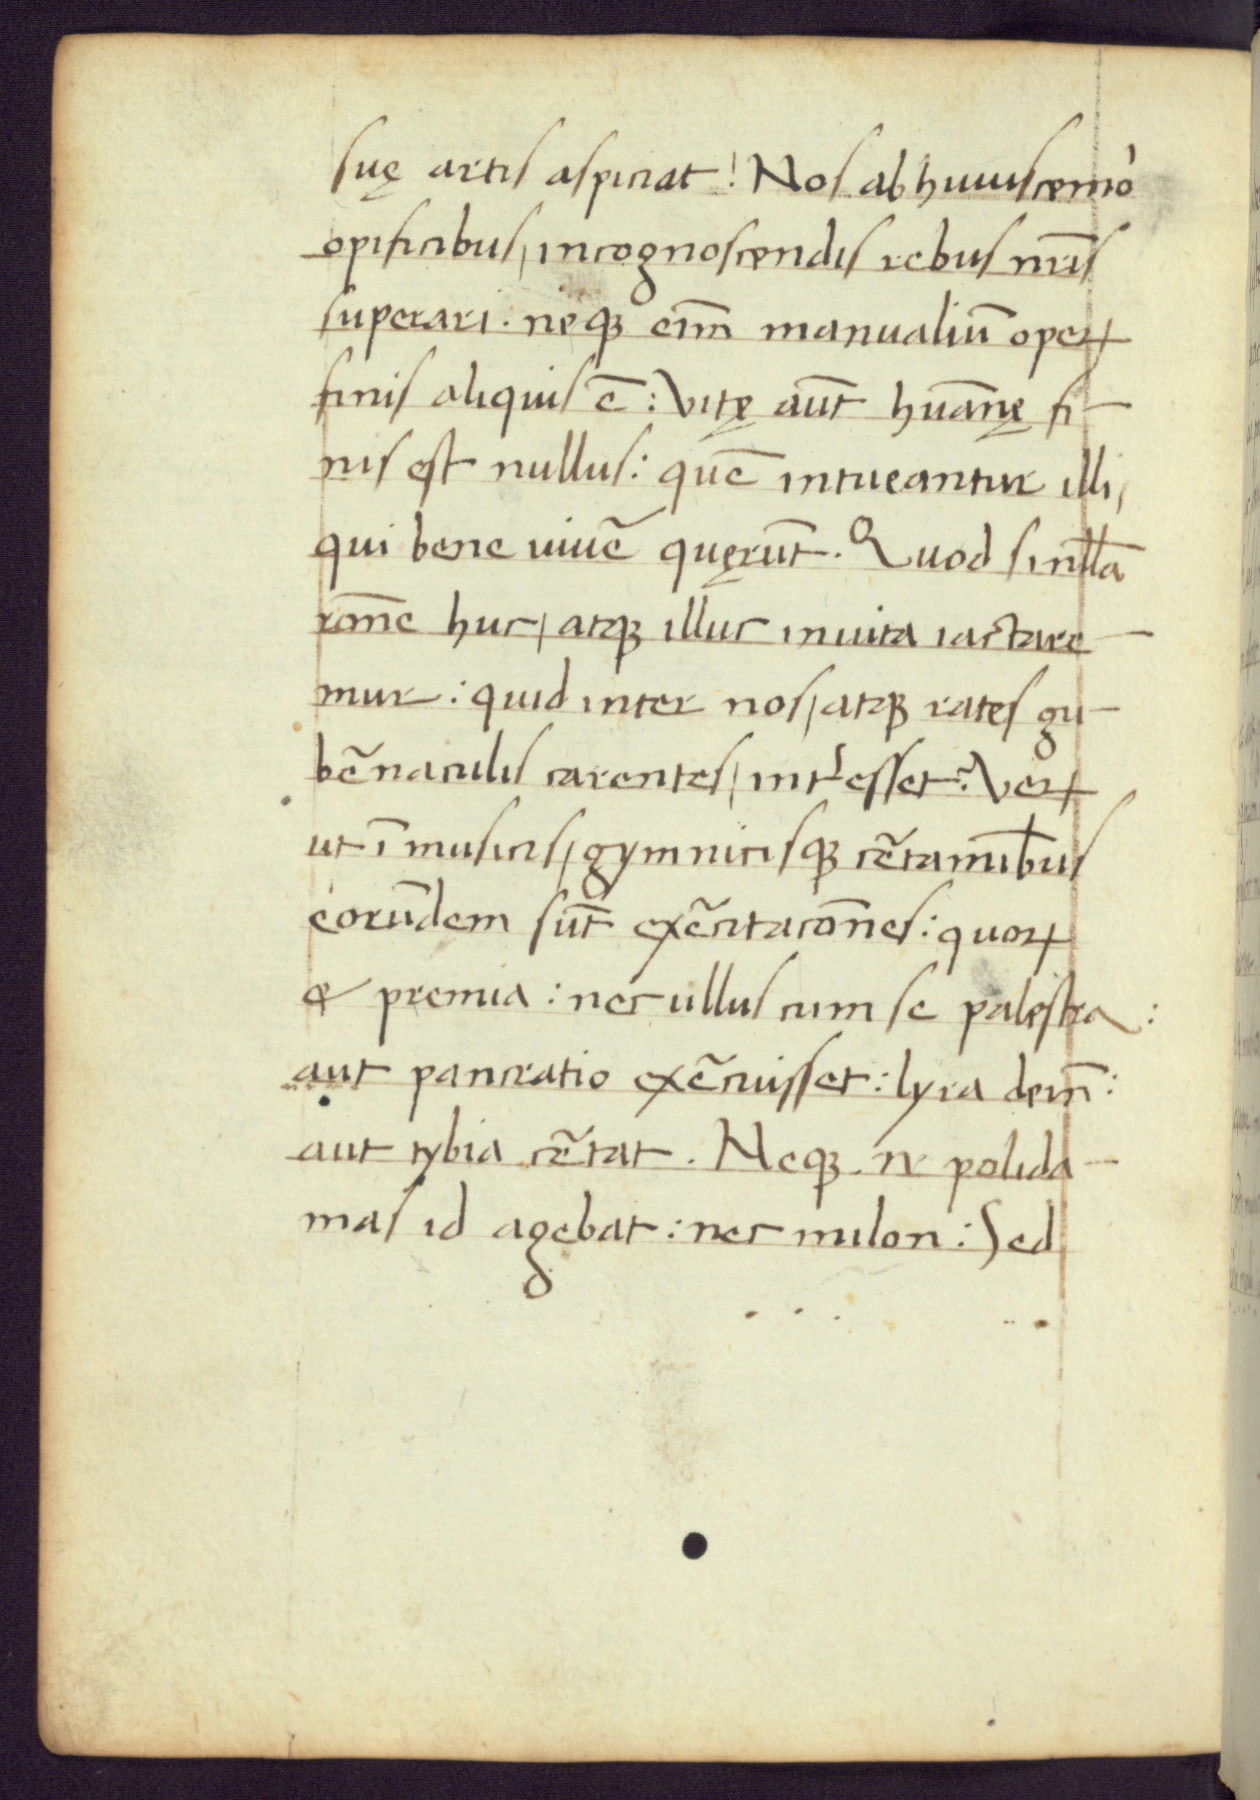 suę artis aspiciat! Nos ab huiuscemo᷒
opificibus, in cognoscendis rebus nr̅is
superari. neqꝫ eni̅m manualiu̅ operꝝ
finis aliquis e̅: Vitę aut̅ hua̅nę fi-
nis est nullus: que̅ intueantur illi,
qui bene uiue̅ quęru̅t. Quod si nu̅lla
ro̅ne huc, atqꝫ illuc in uita iactare-
mur: quid inter nos, atqꝫ rates gu-
be̅naculis carentes, intꝰesset? Verꝝ
ut i̅ musicis, gymnicisqꝫ ce̅tamı̅bus
eoru̅dem su̅t exe̅citaco̅nes: quorꝝ
& premia: nec ullus cum se palestra:
aut pancratio exe̅cuisset: lyra dein̅:
aut tybia ce̅tat. Neqꝫ n̅ polida-
mas id agebat: nec milon: Sed